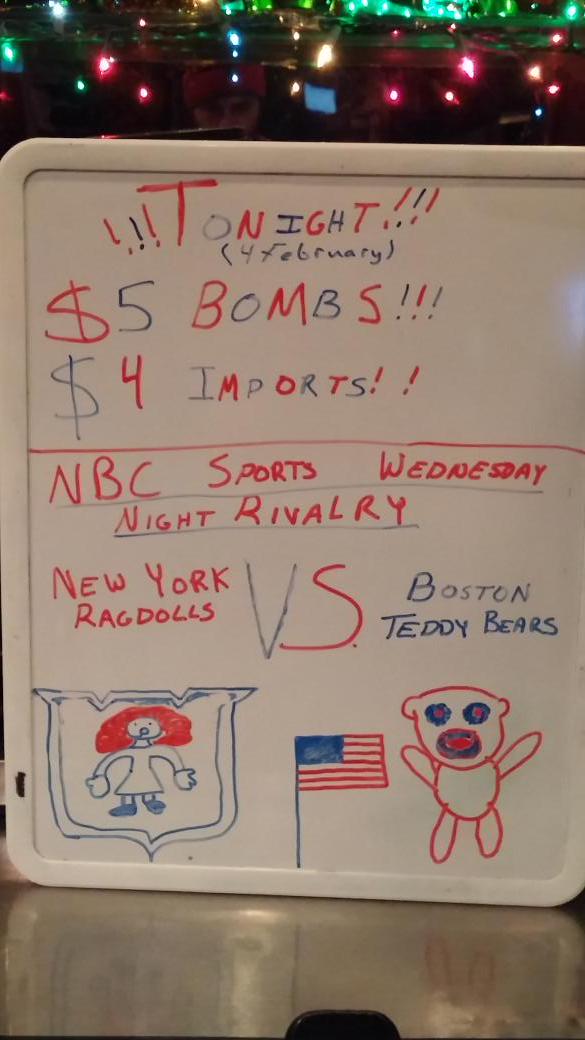 !!!TONIGHT!!!
(4 February)
$5 BOMBS!!!
$4 IMPORTS!!
NBC SPORTS WEDNESDAY
NIGHT RIVALRY
NEW YORK
RAGDOLLS
VS.
BOSTON
TEDDY BEARS